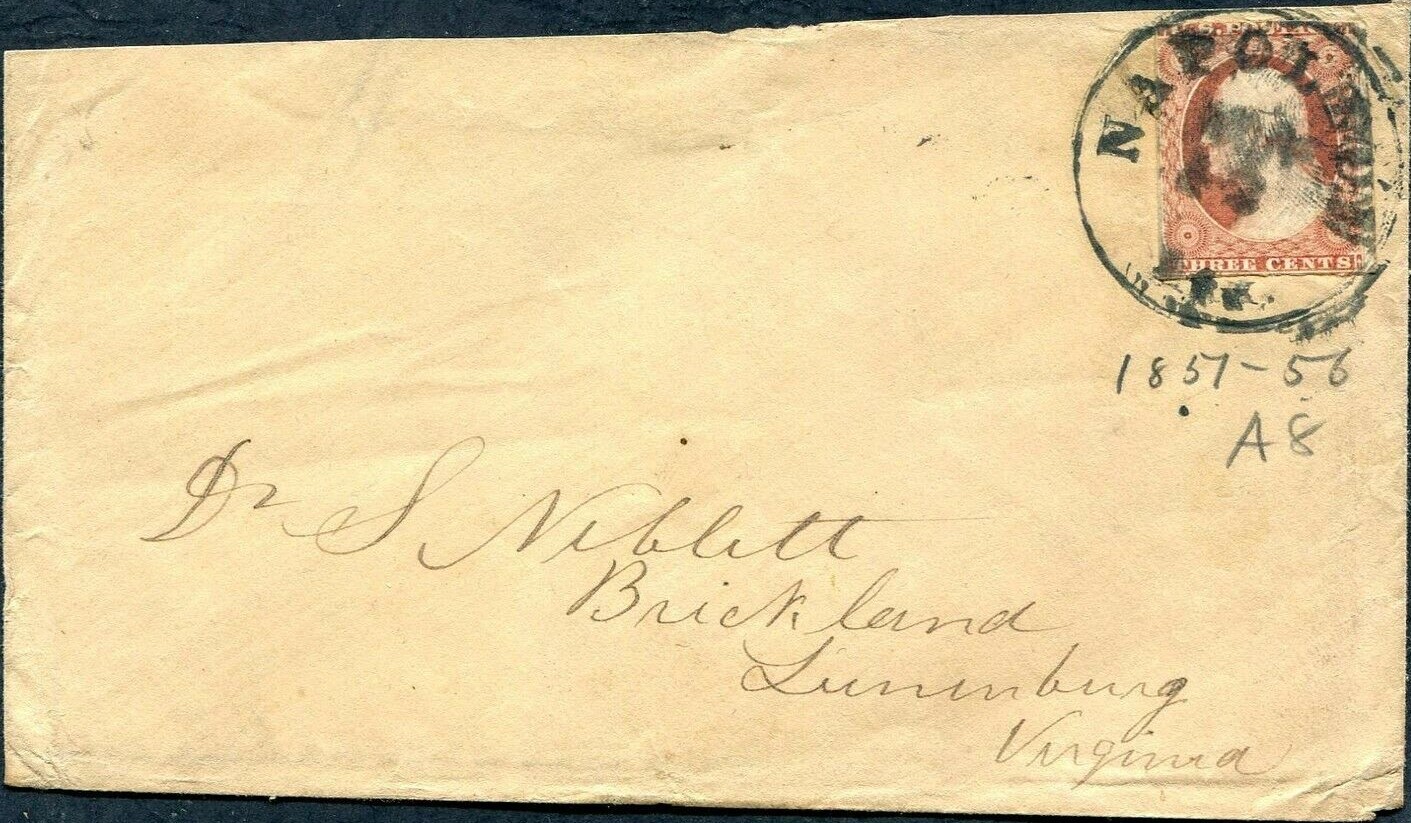 NAPOLEON
ARK.
U.S. POSTAGE
THREE CENTS
1857-56
A8
Dr S Niblett
Brickland
Lunenburg
Virginia